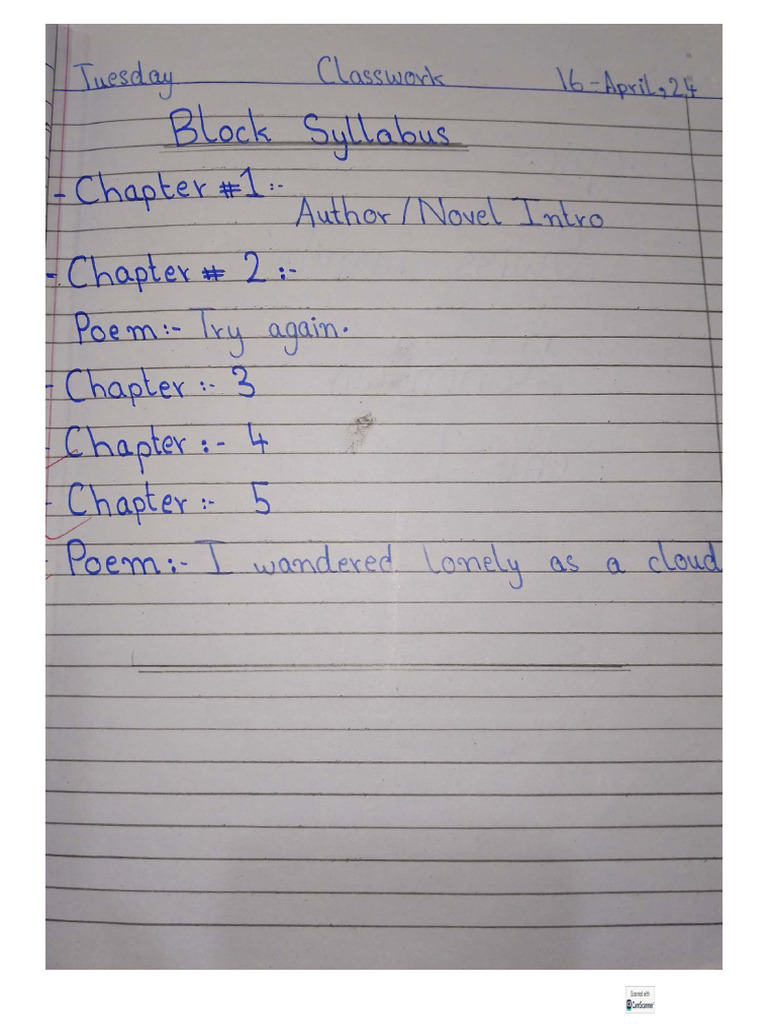 Tuesday Classwork 16-April,24
Block Syllabus
- Chapter #1:-
Author/Novel Intro
- Chapter # 2 :-
Poem:- Try again.
- Chapter :- 3
- Chapter :- 4
- Chapter :- 5
- Poem:- I wandered lonely as a cloud
Scanned with
CamScanner